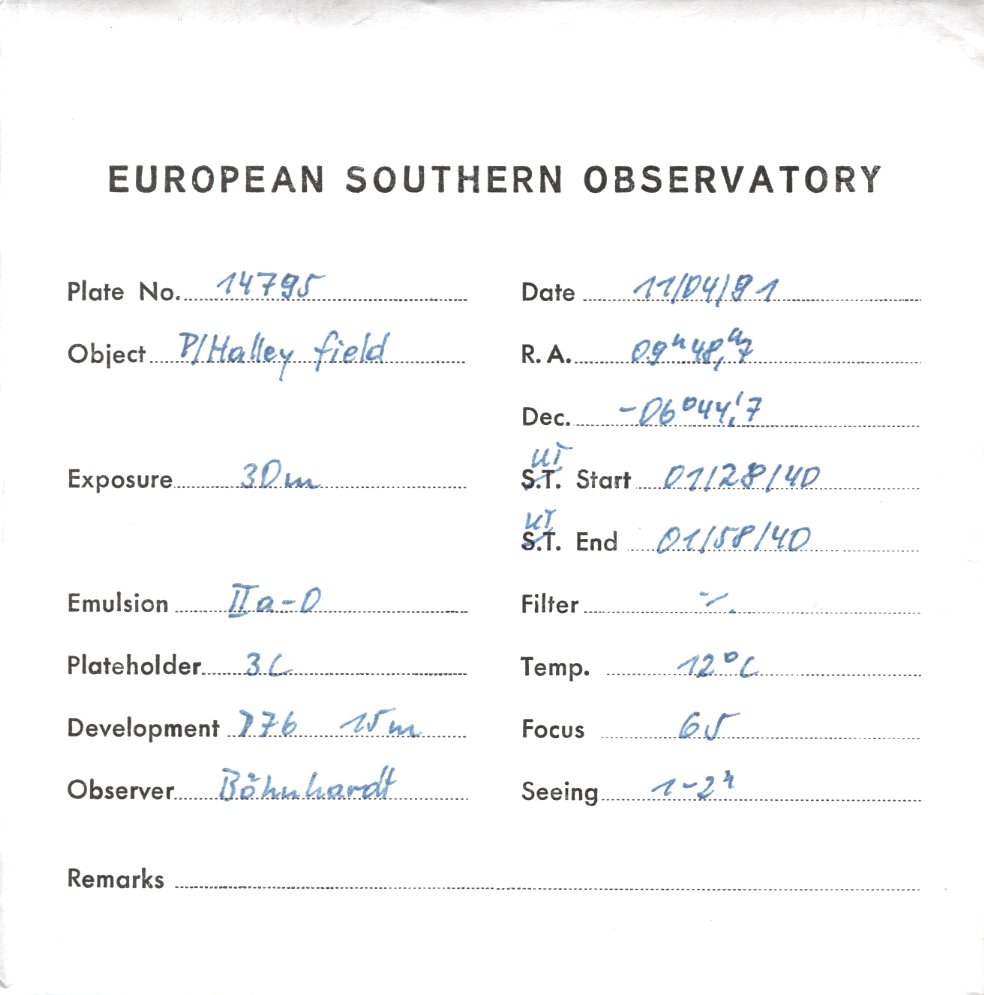 EUROPEAN SOUTHERN OBSERVATORY
Plate No. 14795 Date 11/04/91
Object P/Halley field R.A. 09h48,m7
Dec. -06°44,'7
UT
Exposure 30m S.T. Start 01/28/40
UT
S.T. End 01/58/40
Emulsion IIa-O Filter %.
Plateholder 3C Temp. 12°C
Development D76 15m Focus 65
Observer Böhnhardt Seeing 1-2"
Remarks